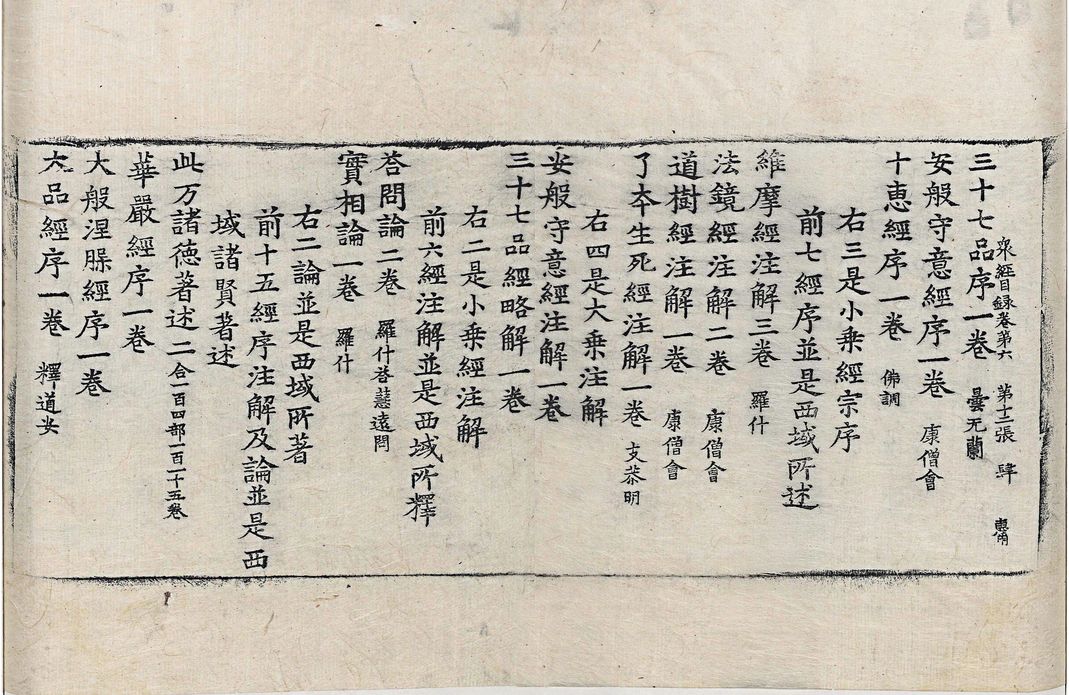 衆經目録卷第六 第十二張 肆
三十七品序一卷 曇无蘭
安般守意經序一卷 康僧會
十恵經序一卷 佛調
右三是小乗經宗序
前七經序並是西域所述
維摩經注解三卷 羅什
法鏡經注解二卷 康僧會
道樹經注解一卷 康僧會
了夲生死經注解一卷 支恭明
右四是大乗注解
安般守意經注解一卷
三十七品經略解一卷
右二是小乗經注解
前六經注解並是西域所釋
荅問論二卷 羅什荅慧遠問
實相論一卷 羅什
右二論並是西域所著
前十五經序注解及論並是西
域諸賢著述
此方諸德著述二合一百四部一百二十五卷
華嚴經序一卷
大般涅槃經序一卷
大品經序一卷 釋道安